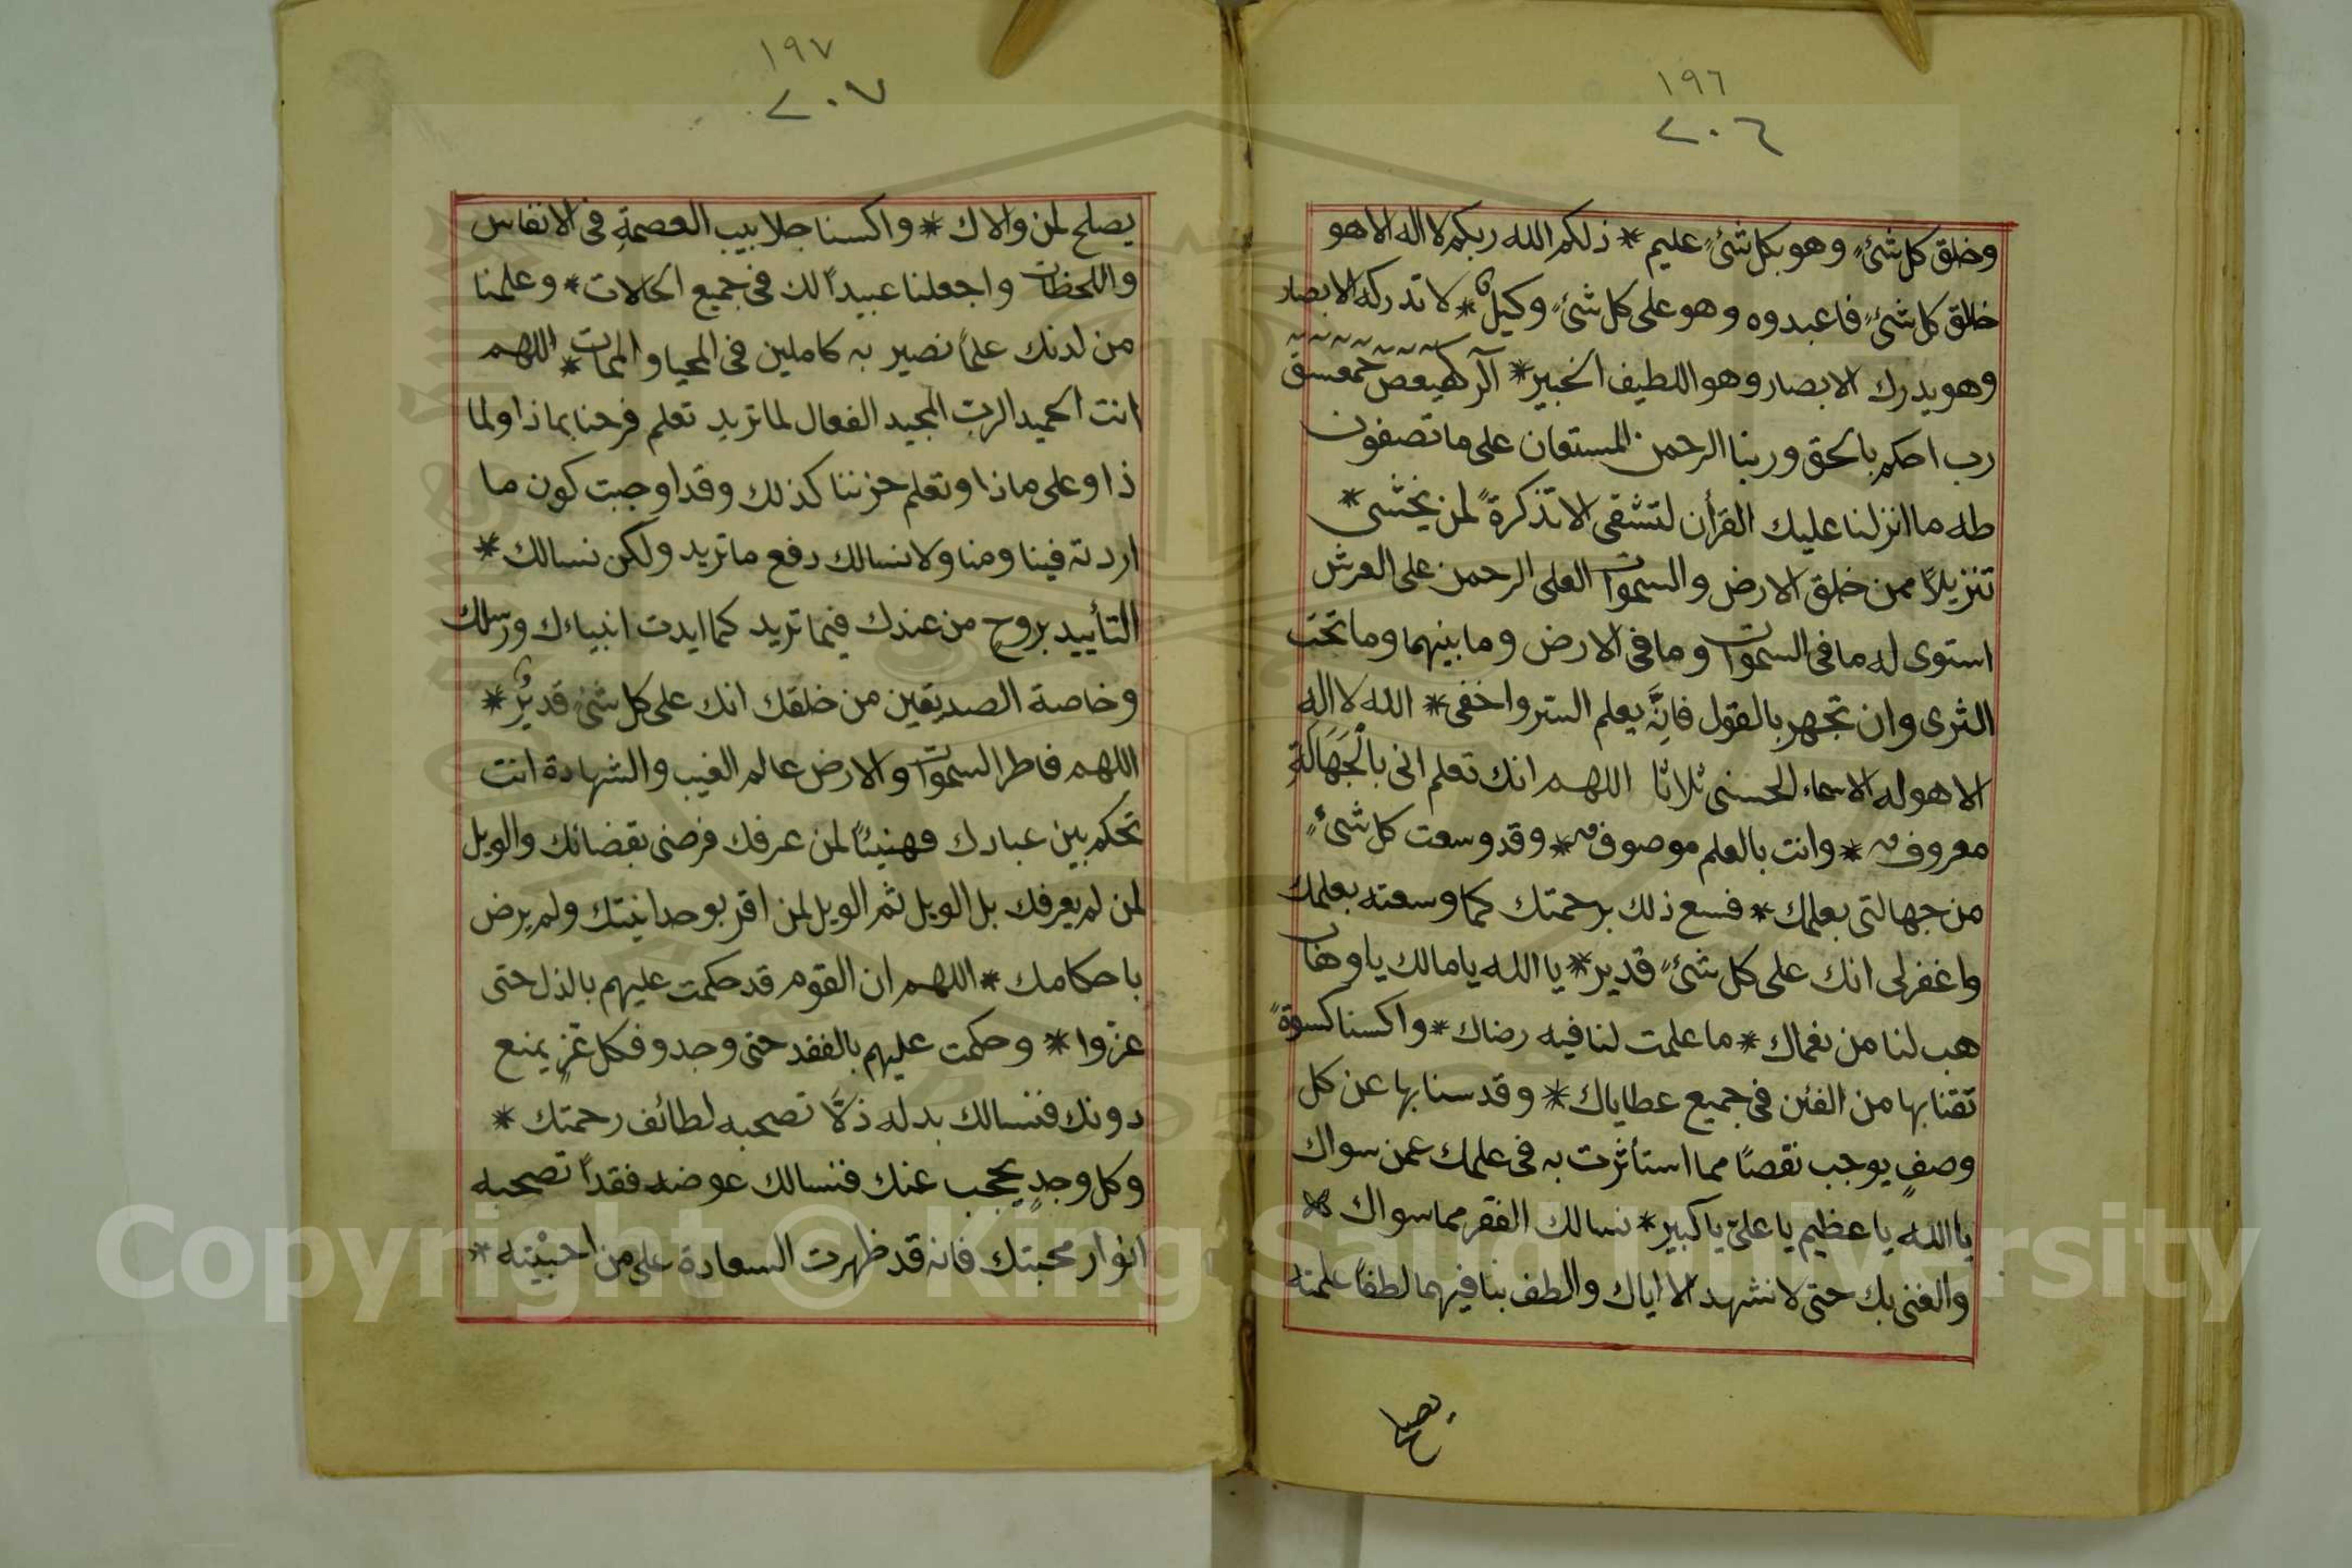 ١٩٦
٢٠٦
وخلق كل شئٍ وهو بكل شئٍ عليم * ذلكم الله ربكم لا اله الا هو
خالق كل شئٍ فاعبدوه وهو على كل شئٍ وكيلٌ * لا تدركه الابصار
وهو يدرك الابصار وهو اللطيف الخبير * آلر كهيعص حمعسق
رب احكم بالحق وربنا الرحمن المستعان على ما تصفون
طه ما انزلنا عليك القرأن لتشقى الا تذكرةً لمن يخشى *
تنزيلاً ممن خلق الارض والسموات العلى الرحمن على العرش
استوى له ما فى السموات وما فى الارض وما بينهما وما تحت
الثرى وان تجهر بالقول فانه يعلم السر واخفى * الله لا اله
الا هو له الاسماء الحسنى ثلاثا اللهم انك تعلم انى بالجَهَالَةِ
معروف * وانت بالعلم موصوف * وقد وسعت كل شئٍ
من جهالتى بعلمك * فسع ذلك برحمتك كما وسعته بعلمك
واغفرلى انك على كل شئٍ قدير * يا الله يا مالك يا وهاب
هب لنا من نعماك * ما علمت لنا فيه رضاك * واكسنا كسوةً
تقنا بها من الفتن فى جميع عطاياك * وقدسنا بها عن كل
وصفٍ يوجب نقصًا مما استأثرت به فى علمك عمن سواك
يا الله يا عظيم يا علىّ يا كبير * نسالك الفقر مما سواك *
والغنى بك حتى لا نشهد الا اياك والطف بنا فيهما لطفًا علمته
يصلح
١٩٧
٢٠٧
يصلح لمن والاك * واكسنا جلابيب العصمةِ فى الانفاس
واللحظات واجعلنا عبيداً لك فى جميع الحالات * وعلمنا
من لدنك علمًا نصير به كاملين فى المحيا والممات * اللهم
انت الحميد الرب المجيد الفعال لما تريد تعلم فرحنا بماذا ولما
ذا وعلى ماذا وتعلم حزننا كذلك وقد اوجبت كون ما
اردته فينا ومنا ولا نسالك دفع ما تريد ولكن نسالك *
التأييد بروحٍ من عندك فيما تريد كما ايدت انبياءك ورسلك
وخاصة الصديقين من خلقك انك على كل شئٍ قديرٌ *
اللهم فاطر السموات والارض عالم الغيب والشهادة انت
تحكم بين عبادك فهنيئًا لمن عرفك فرضى بقضائك والويل
لمن لم يعرفك بل الويل ثم الويل لمن اقر بوحدانيتك ولم يرض
باحكامك * اللهم ان القوم قد حكمت عليهم بالذل حتى
عزوا * وحكمت عليهم بالفقد حتى وجدو فكل عزٍ يمنع
دونك فنسالك بدله ذلًّا تصحبه لطائف رحمتك *
وكل وجدٍ يحجب عنك فنسالك عوضه فقداً تصحبه
انوار محبتك فانه قد ظهرت السعادة على من احببته *
Copyright © King Saud University